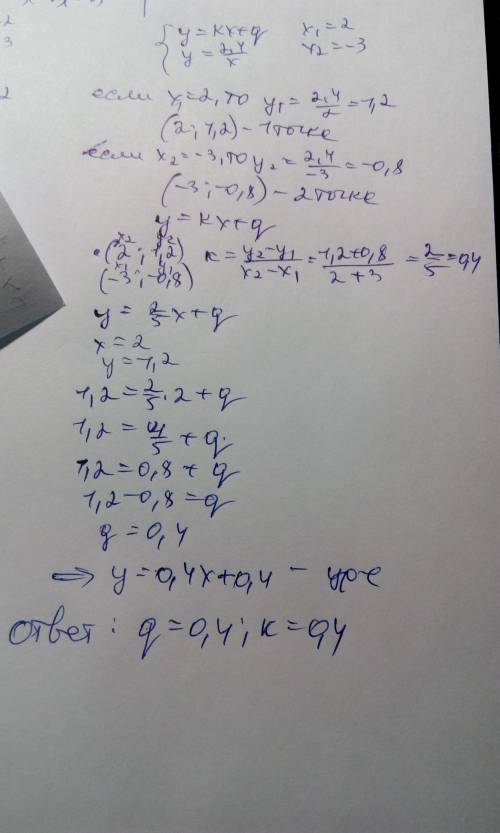 y = kx+q x₁=2
y = 2,4/x x₂=-3
если x₁=2, то y₁= 2,4/2 =1,2
(2; 1,2) - 1 точка
если x₂=-3, то y₂= 2,4/-3 =-0,8
(-3; -0,8) - 2 точка
y = kx+q
x₂ y₂
(2; 1,2) k= y₂-y₁/x₂-x₁ = 1,2+0,8/2+3 = 2/5 =0,4
x₁ y₁
(-3; -0,8)
y = 2/5 x+q
x=2
y=1,2
1,2= 2/5 · 2+q
1,2= 4/5 +q
1,2=0,8+q
1,2-0,8=q
q=0,4
⇒ y=0,4x+0,4 - ур-е
Ответ: q=0,4; k=0,4